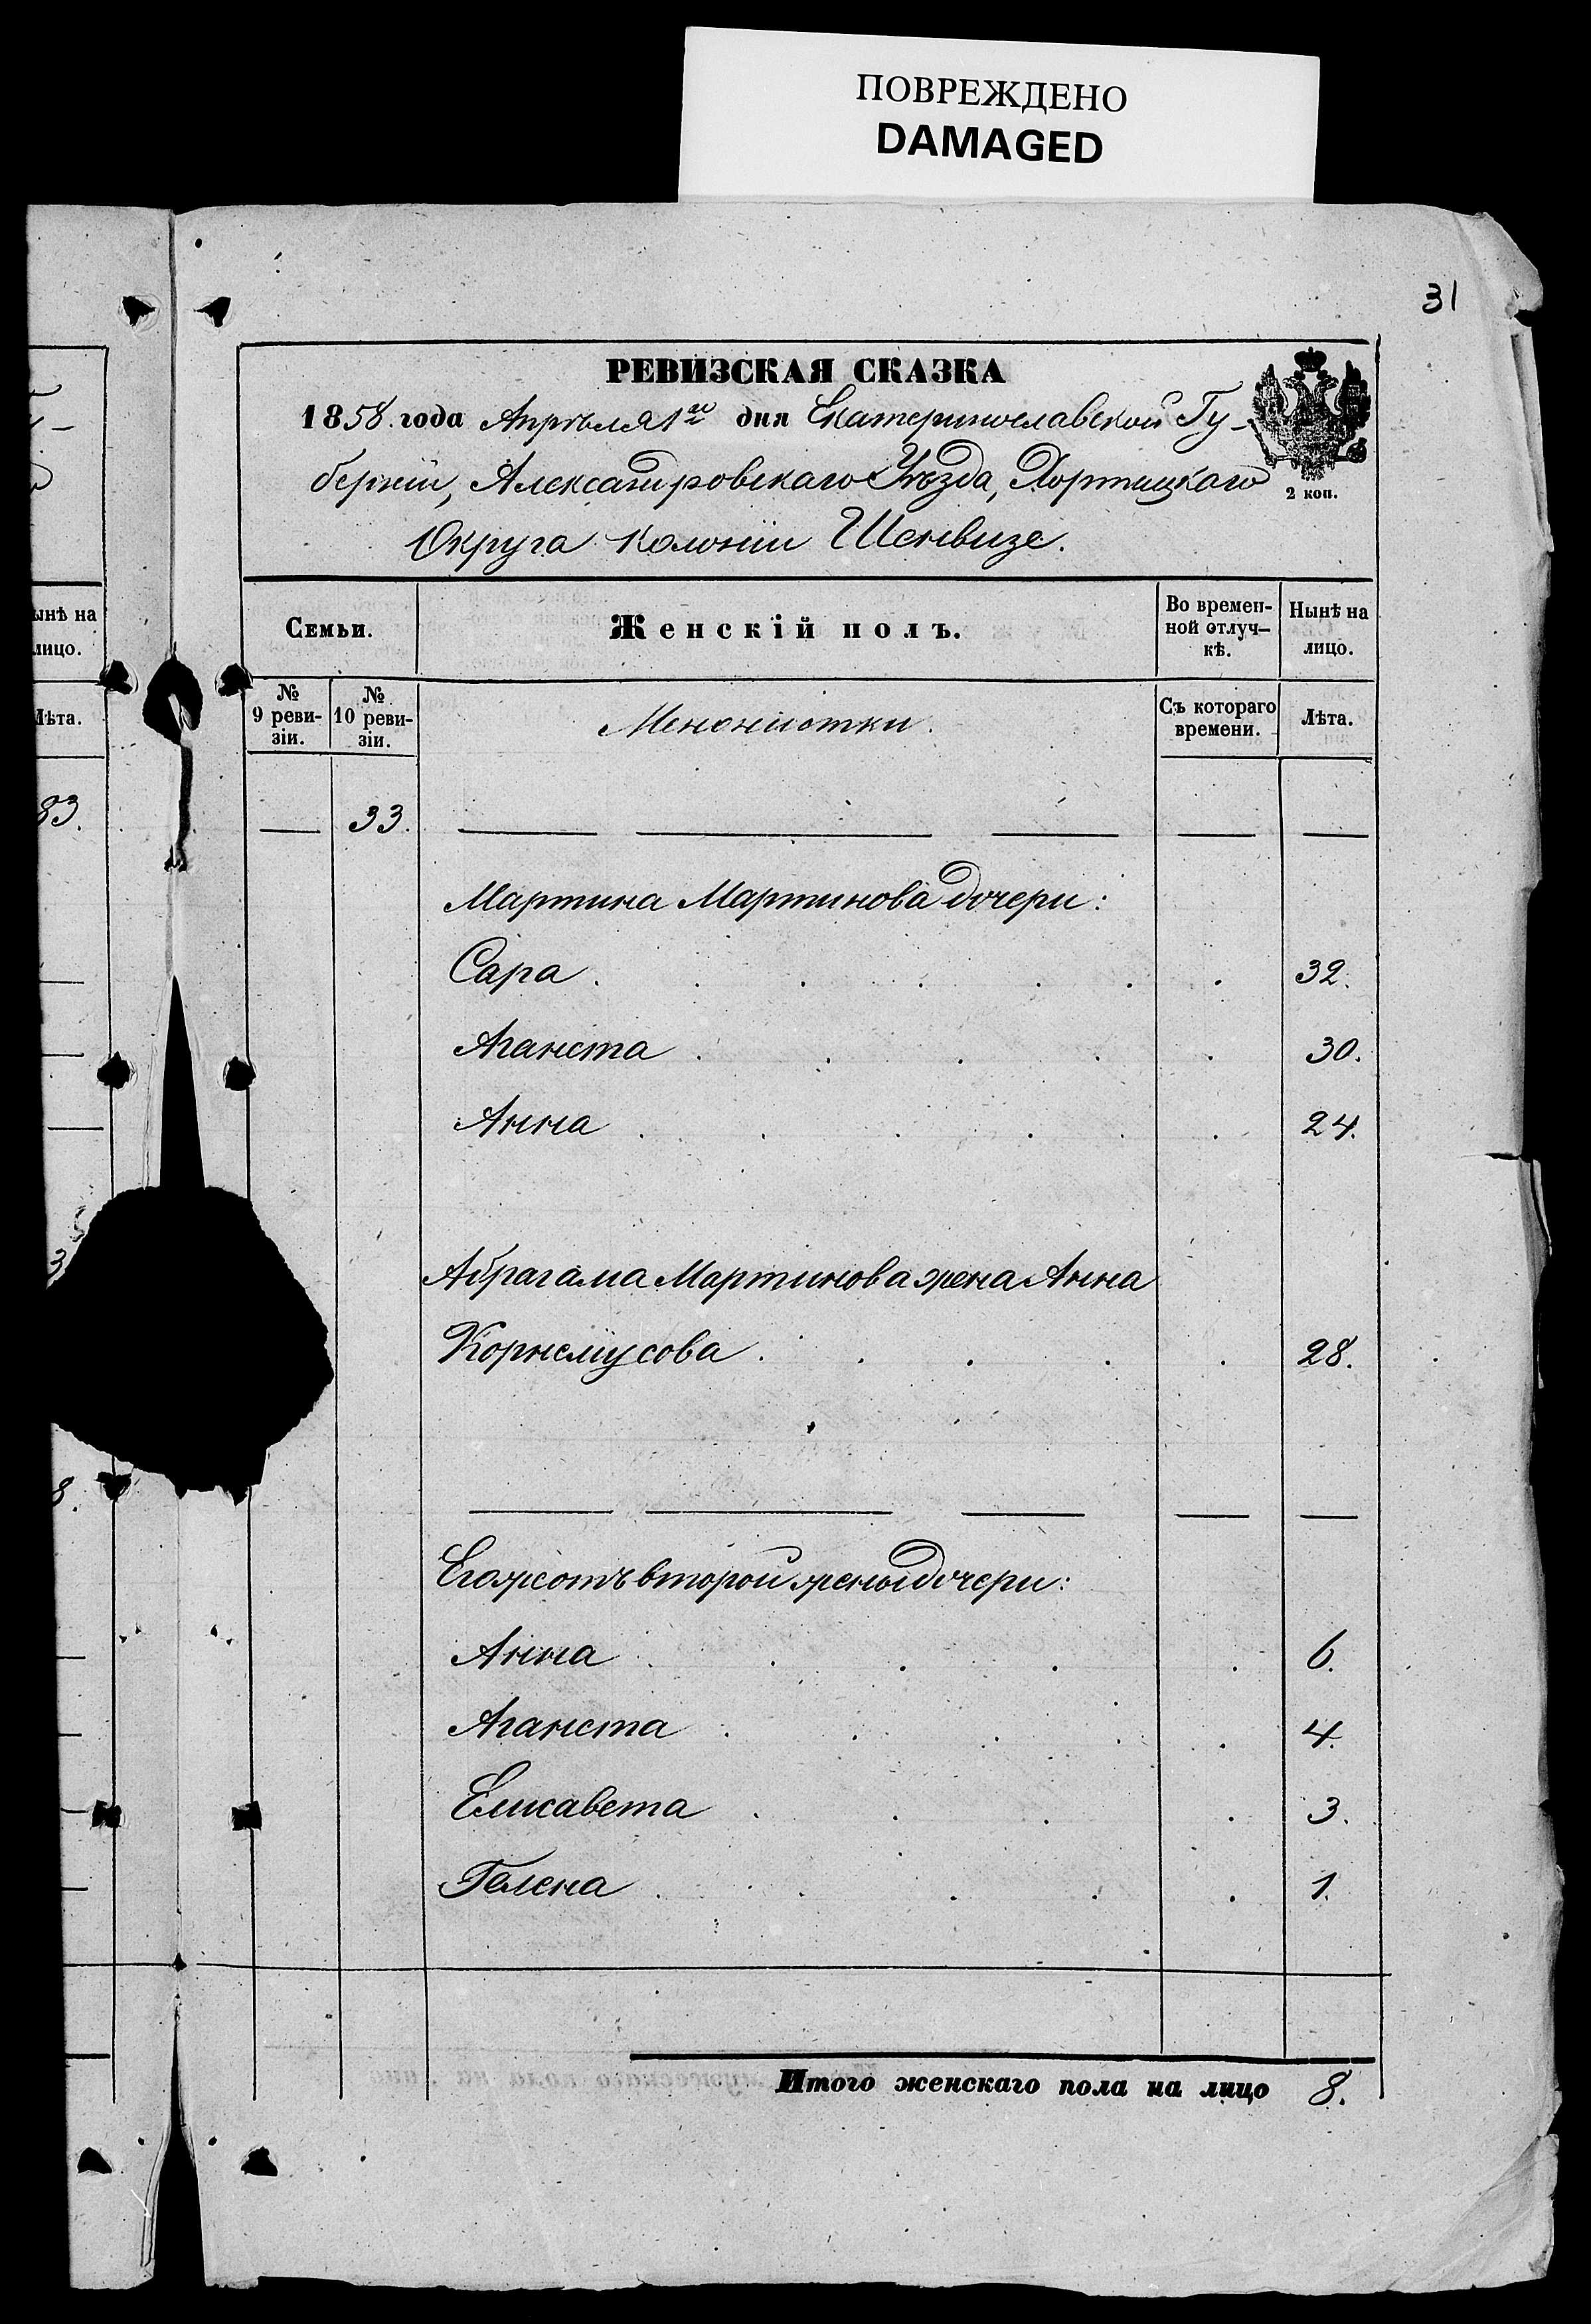 ПОВРЕЖДЕНО
DAMAGED
31
РЕВИЗСКАЯ СКАЗКА
1858. года Апрѣля 1го дня Екатеринославской Гу-
берніи, Александровскаго Уѣзда, Хортицкаго
2 коп.
Округа Колоніи Шенвизе.
ынѣ на
лицо.
Лѣта.
Семьи.
Женскій полъ.
Во времен-
ной отлуч-
кѣ.
Нынѣ на
лицо.
№
9 реви-
зіи.
№
10 реви-
зіи.
Менонистки.
Съ котораго
времени.
Лѣта.
83.
33.
Мартина Мартинова дочери:
Сара . 32.
Аганета . 30.
Анна . 24.
3
Абрагама Мартинова жена Анна
Корнеліусова . 28.
8.
Его же отъ второй жены дочери:
Анна . 6.
Аганета . 4.
Елисавета . 3.
Гелена . 1.
Итого женскаго пола на лицо 8.